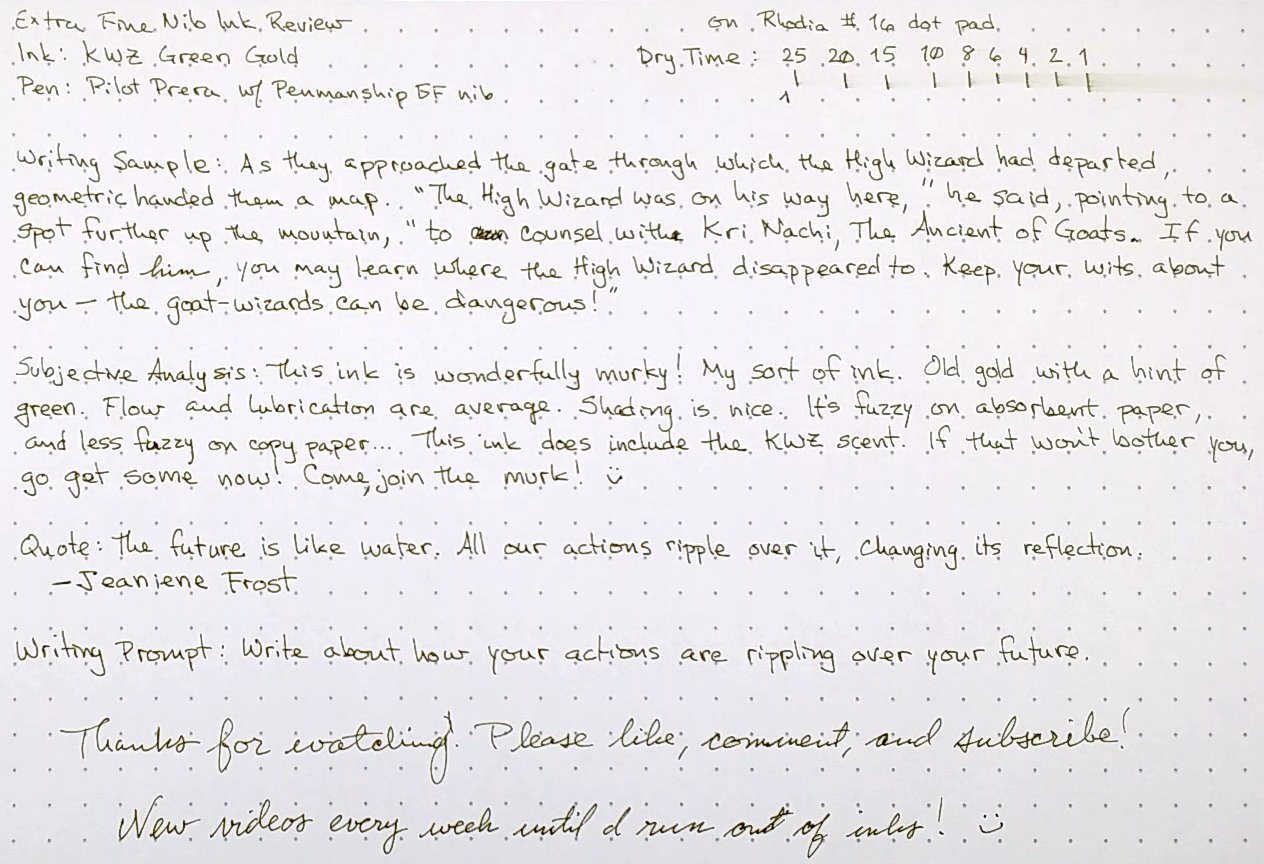 Extra Fine Nib Ink Review
on Rhodia #16 dot pad
Ink: KWZ Green Gold
Dry Time: 25 20 15 10 8 6 4 2 1
Pen: Pilot Prera w/ Penmanship EF nib
1
Writing Sample: As they approached the gate through which the High Wizard had departed,
geometric handed them a map. "The High Wizard was on his way here," he said, pointing to a
spot further up the mountain, "to counsel with Kri Nachi, The Ancient of Goats. If you
can find him, you may learn where the High Wizard disappeared to. Keep your wits about
you – the goat-wizards can be dangerous!"
Subjective Analysis: This ink is wonderfully murky! My sort of ink. Old gold with a hint of
green. Flow and lubrication are average. Shading is nice. It's fuzzy on absorbent paper,
and less fuzzy on copy paper... This ink does include the KWZ scent. If that won't bother you,
go get some now! Come, join the murk! :)
Quote: The future is like water. All our actions ripple over it, changing its reflection.
– Jeaniene Frost
Writing Prompt: Write about how your actions are rippling over your future.
Thanks for watching! Please like, comment, and subscribe!
New videos every week until I run out of inks! :)